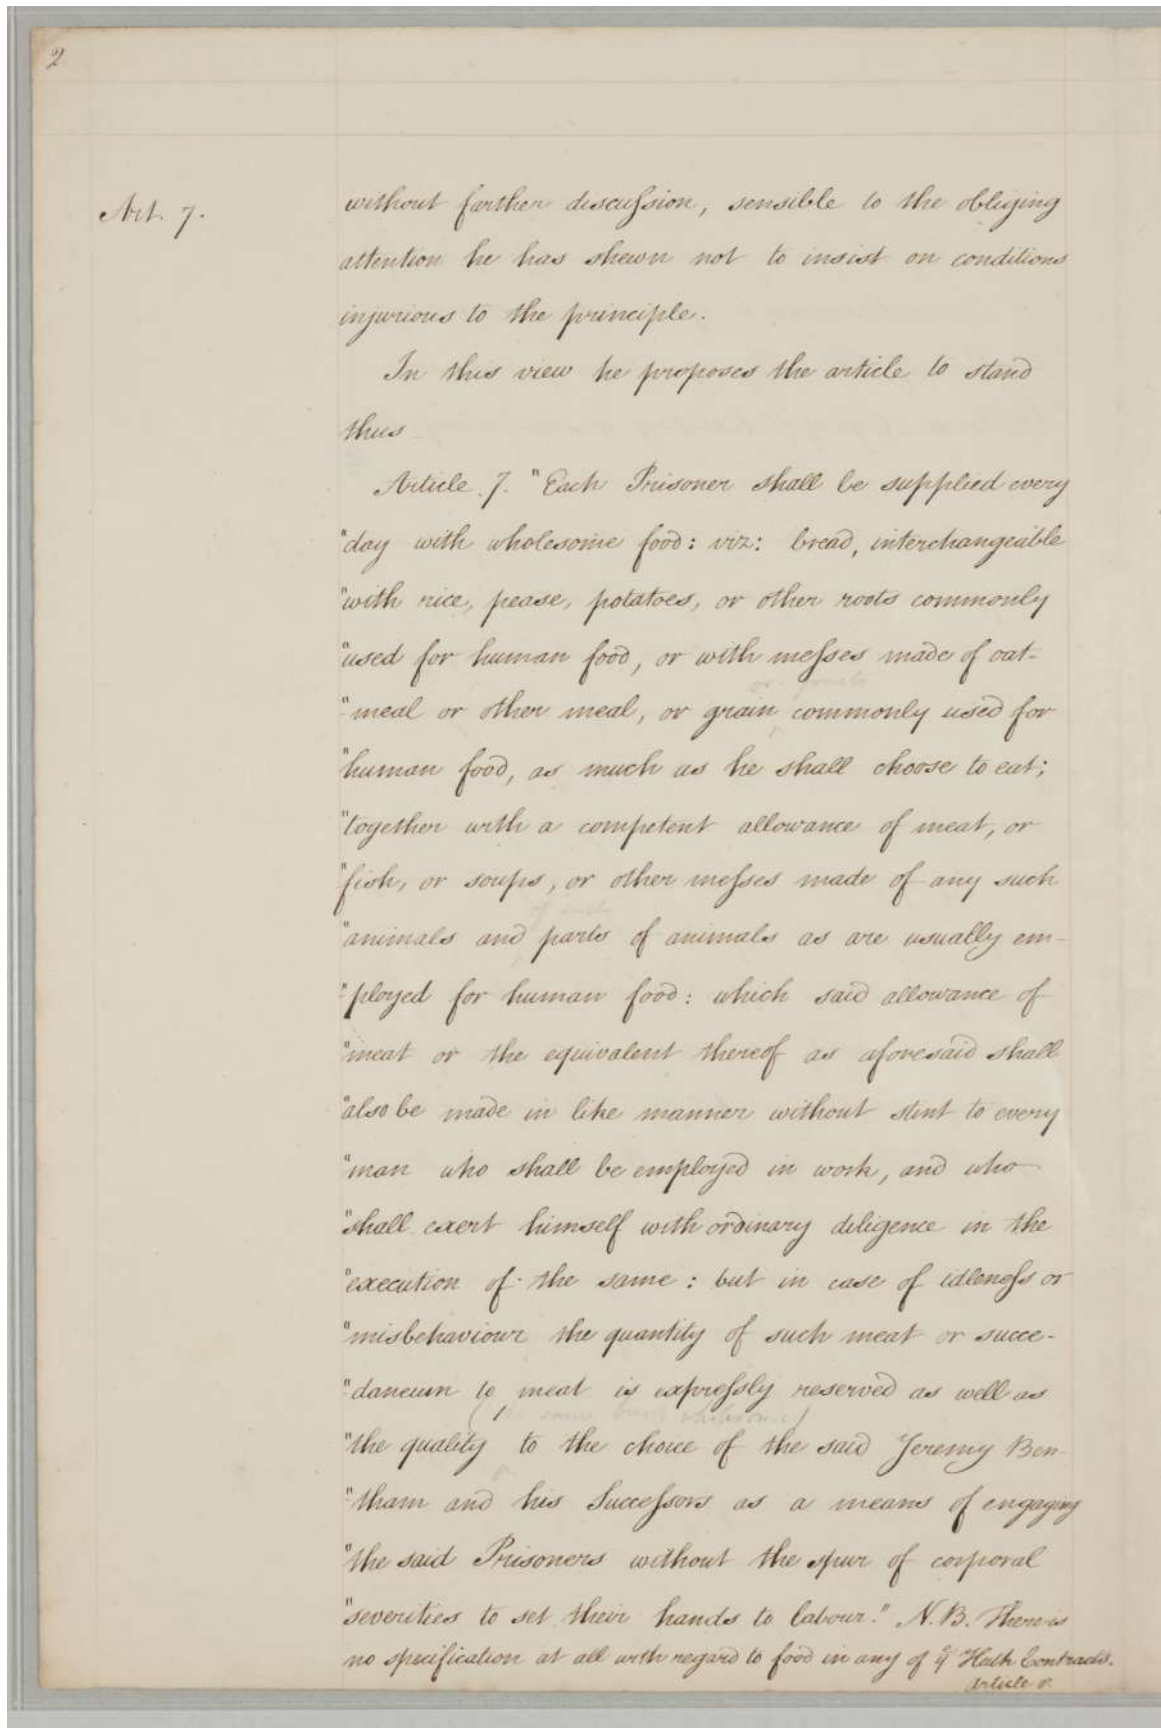 2
Art. 7.
without farther discussion, sensible to the obliging
attention he has shewn not to insist on conditions
injurious to the principle.
In this view he proposes the article to stand
thus
Article. 7. "Each Prisoner shall be supplied every
"day with wholesome food: viz: bread, interchangeable
"with rice, pease, potatoes, or other roots commonly
"used for human food, or with messes made of oat-
or
"meal or other meal, or grain commonly used for
"human food, as much as he shall choose to eat;
"together with a competent allowance of meat, or
"fish, or soups, or other messes made of any such
"animals and parts of animals as are usually em-
"ployed for human food: which said allowance of
"meat or the equivalent thereof as aforesaid shall
"also be made in like manner without stint to every
"man who shall be employed in work, and who
"shall exert himself with ordinary diligence in the
"execution of the same: but in case of idleness or
"misbehaviour the quantity of such meat or succe-
"daneum to meat is expressly reserved as well as
"the quality to the choice of the said Jeremy Ben-
"tham and his Successors as a means of engaging
"the said Prisoners without the spur of corporal
"severities to set their hands to labour." N.B. There is
no specification at all with regard to food in any of ye Hulk Contracts.
Article